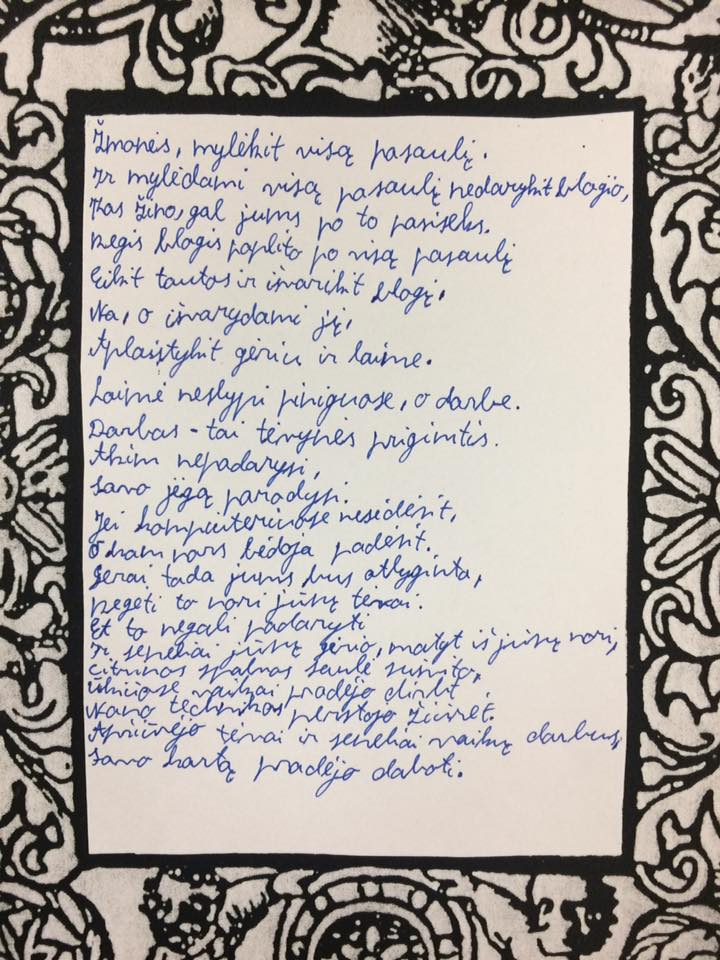 Žmonės, mylėkit visą pasaulį.
Ir mylėdami visą pasaulį nedarykit blogio,
Kas žino, gal jums po to pasiseks.
regis blogis paplito po visą pasaulį
Eikit tautos ir išvarikit blogį,
Na, o išvarydami jį,
Aplaistykit gėriu ir laime.
Laimė neslypi piniguose, o darbe.
Darbas - tai tėvynės prigimtis.
Akim nepadarysi,
Savo jėgą parodysi.
Jei kompiuteriuose nesėdėsit,
O kam nors bėdoja padėsit.
Gerai tada jums bus atlyginta,
regėti to nori jūsų tėvai.
Et to negali padaryti
Ir seneliai jūsų gėrio, matyt iš jūsų nori,
citrinos spalvos saulė sušvito,
ūkiuose vaikai pradėjo dirbt
Nano technikos perstojo žiūrėt.
Apžiūrėjo tėvai ir seneliai vaikų darbus,
Savo kartą pradėjo daboti.